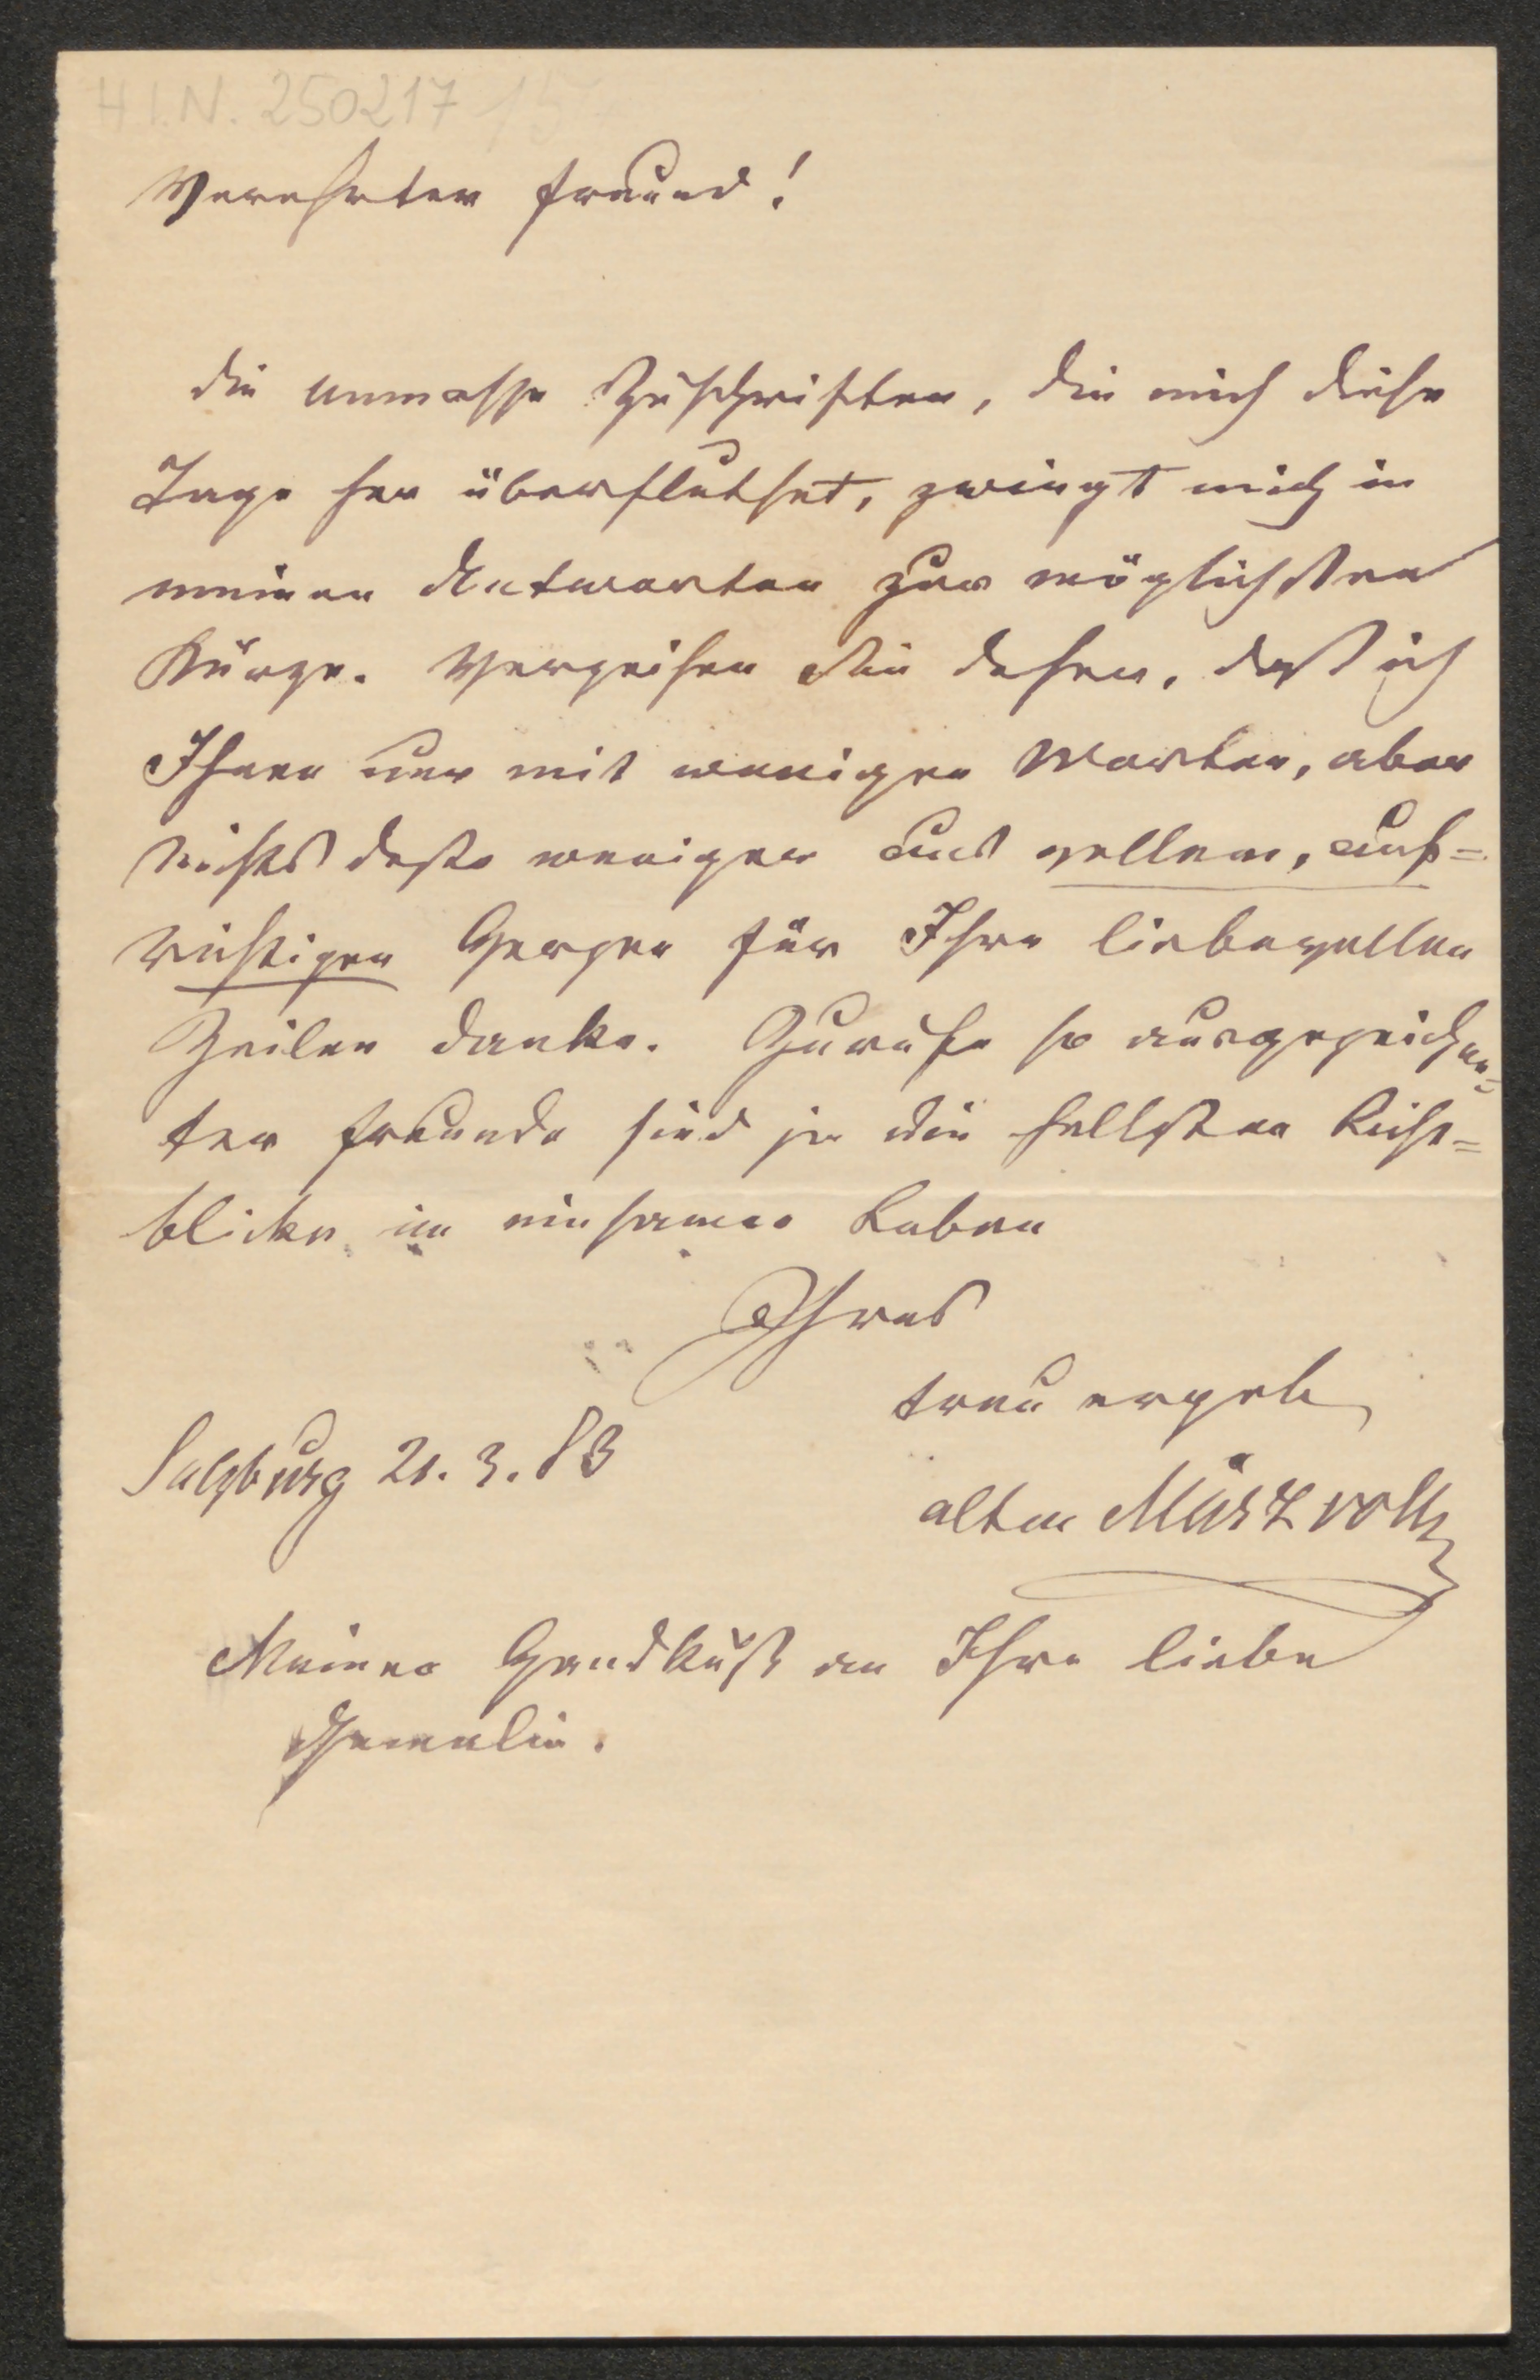 H.I.N. 250217
Verehrter Freund!
Die Unmasse Zuschriften, die mich diese
Tage her überfluthet, zwingt mich in
meinen Antworten zur möglichsten
Kürze. Verzeihen Sie daher, daß ich
Ihnen nur mit wenigen Worten, aber
nichts desto weniger aus vollem, auf=
richtigen Herzen für Ihre liebevollen
Zeilen danke. Zurufe so ausgezeichne=
ter Freunde sind ja die hellsten Licht=
blicke im einsamen Leben
Ihres
treu ergeb
Salzburg 21.3.83
alten Märzroth
Meinen Handkuß an Ihre liebe
Gemalin.